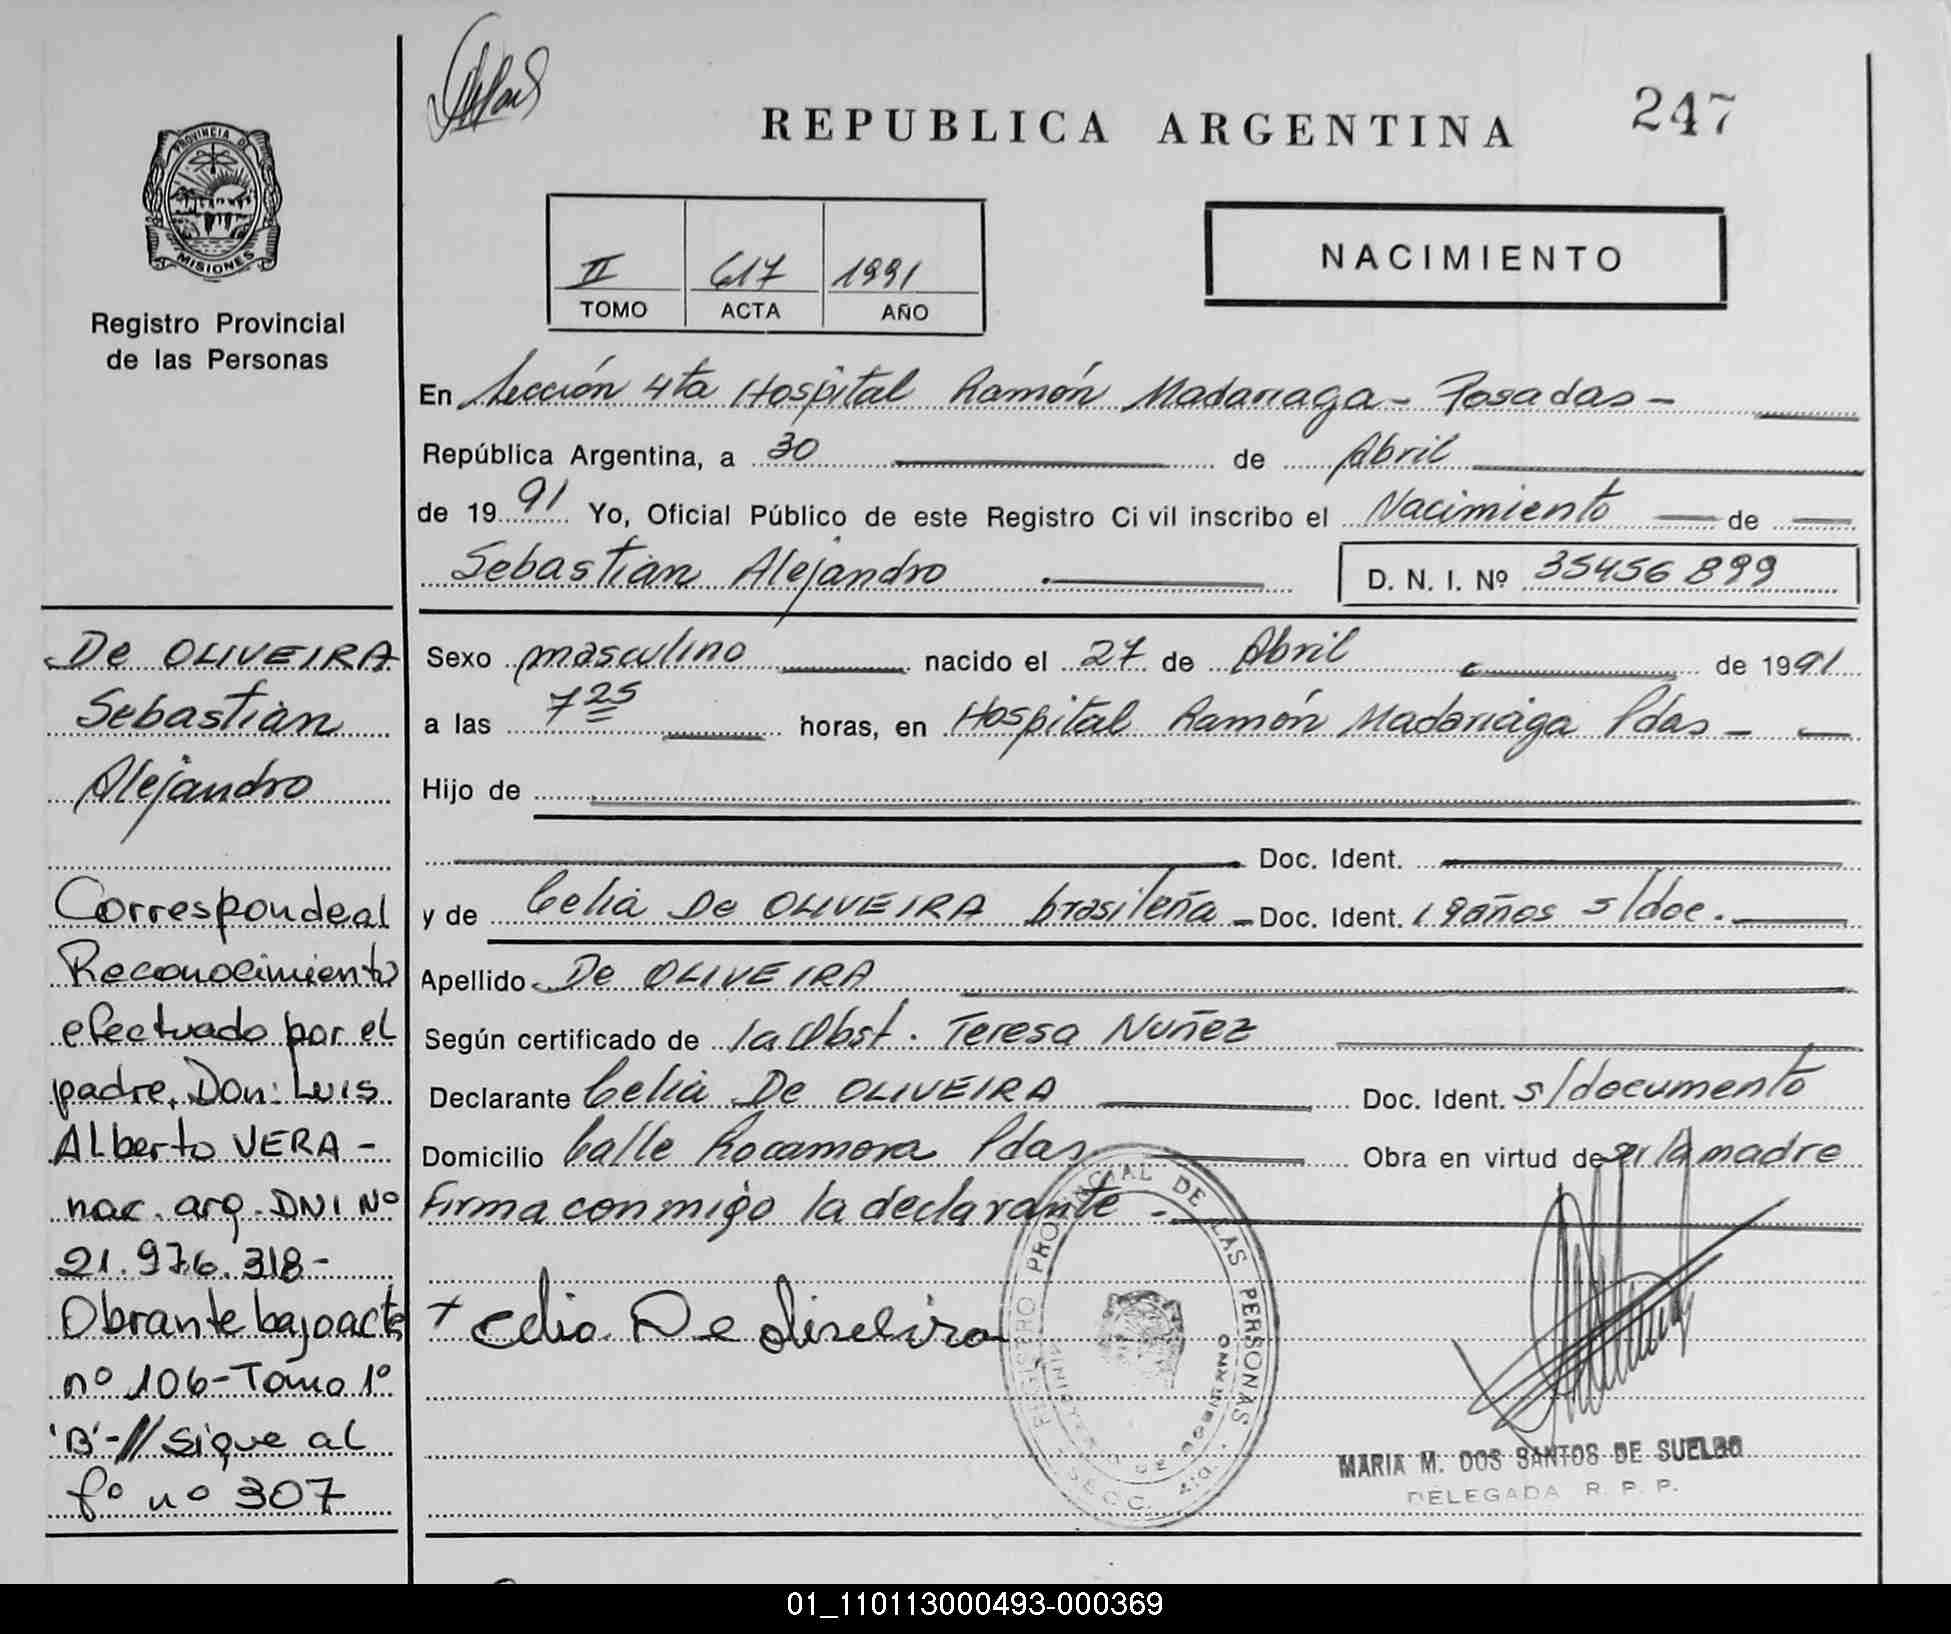 247
REPUBLICA ARGENTINA
PROVINCIA DE
MISIONES
Registro Provincial
de las Personas
NACIMIENTO
II 617 1991
TOMO ACTA AÑO
En Sección 4ta Hospital Ramón Madariaga - Posadas -
República Argentina, a 30 de Abril
de 1991 Yo, Oficial Público de este Registro Civil inscribo el Nacimiento de
Sebastian Alejandro D. N. I. Nº 35456899
Sexo masculino nacido el 27 de Abril de 1991
a las 7 25 horas, en Hospital Ramón Madariaga Pdas -
Hijo de
Doc. Ident.
y de Celia De OLIVEIRA brasileña - Doc. Ident. 19 años s/doc.
Apellido De OLIVEIRA
Según certificado de la Obst. Teresa Nuñez
Declarante Celia De OLIVEIRA Doc. Ident. s/documento
Domicilio Calle Rocamora Pdas Obra en virtud de ser la madre
Firma conmigo la declarante -
+ Celia De Oliveira
REGISTRO PROVINCIAL DE LAS PERSONAS
MINISTERIO DE GOBIERNO
SECC. 4ta.
MARIA M. DOS SANTOS DE SUELDO
DELEGADA R. P. P.
De OLIVEIRA
Sebastian
Alejandro
Corresponde al
Reconocimiento
efectuado por el
padre, Don: Luis
Alberto VERA -
nac. arg. DNI Nº
21.976.318-
Obrante bajo acta
nº 106-Tomo 1º
'B'-// Sigue al
fº nº 307
01_110113000493-000369